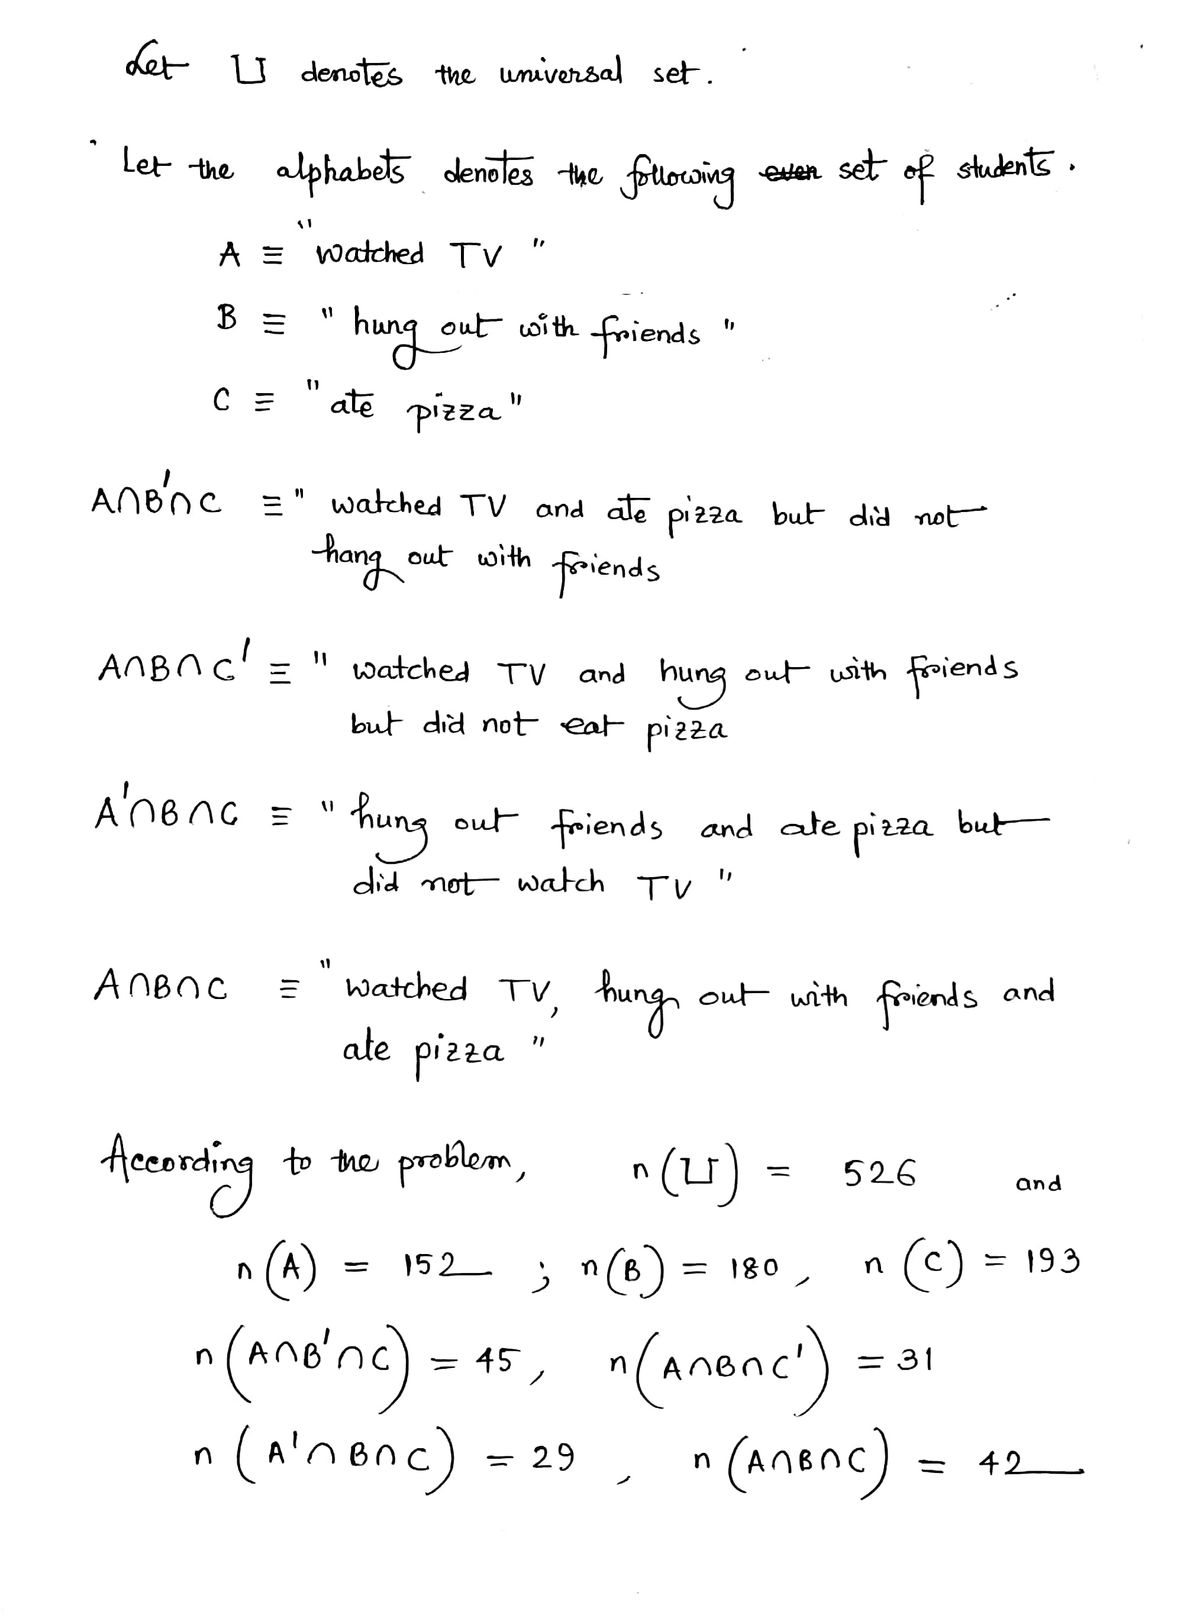 Let U denotes the universal set.
Let the alphabets denotes the following even set of students.
A ≡ "watched TV"
B ≡ "hung out with friends"
C ≡ "ate pizza"
A∩B'∩C ≡ " watched TV and ate pizza but did not
hang out with friends
A∩B∩C' ≡ " watched TV and hung out with friends
but did not eat pizza
A'∩B∩C ≡ " hung out friends and ate pizza but
did not watch TV "
A∩B∩C ≡ " watched TV, hung out with friends and
ate pizza "
According to the problem, n(U) = 526 and
n(A) = 152 ; n(B) = 180, n(C) = 193
n(A∩B'∩C) = 45, n(A∩B∩C') = 31
n(A'∩B∩C) = 29, n(A∩B∩C) = 42